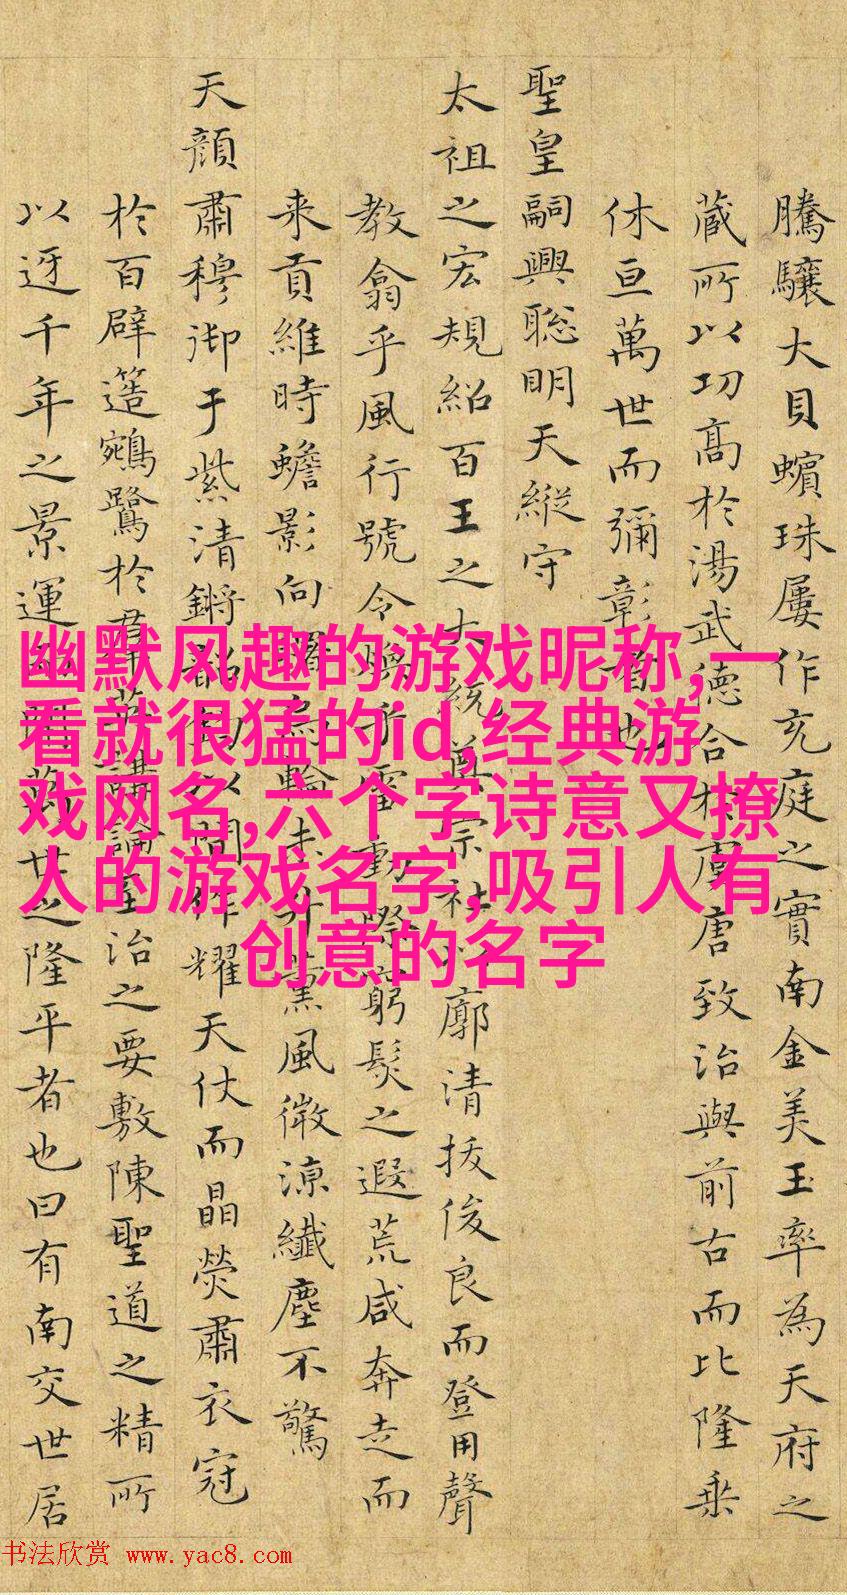 騰驤大貝蠙珠屢作充庭之實南金美玉率為天府之
藏所以功高於湯武德合於虞唐致治與前古而比隆乘
休亘萬世而彌彰者也
聖皇嗣興聡明天縱守
太祖之宏規紹百王之大統尊宗社廓清拔俊良而登用聲
教翕乎風行號令煥乎雷動際窮髮之遐荒咸奔走而
来貢維時蟾影向曙烏輪未升薰風微涼纖塵不驚
天顔肅穆御于紫清鏘作耀天仗而晶熒肅衣冠
於百辟簉鵷鷺於講論至治之要敷陳聖道之精所
以迓千年之景運萬世之隆平者也曰有南交世居
幽默风趣的游戏昵称,一
看就很猛的id,经典游
戏网名,六个字诗意又撩
人的游戏名字,吸引人有
创意的名字
书法欣赏 www.yac8.com